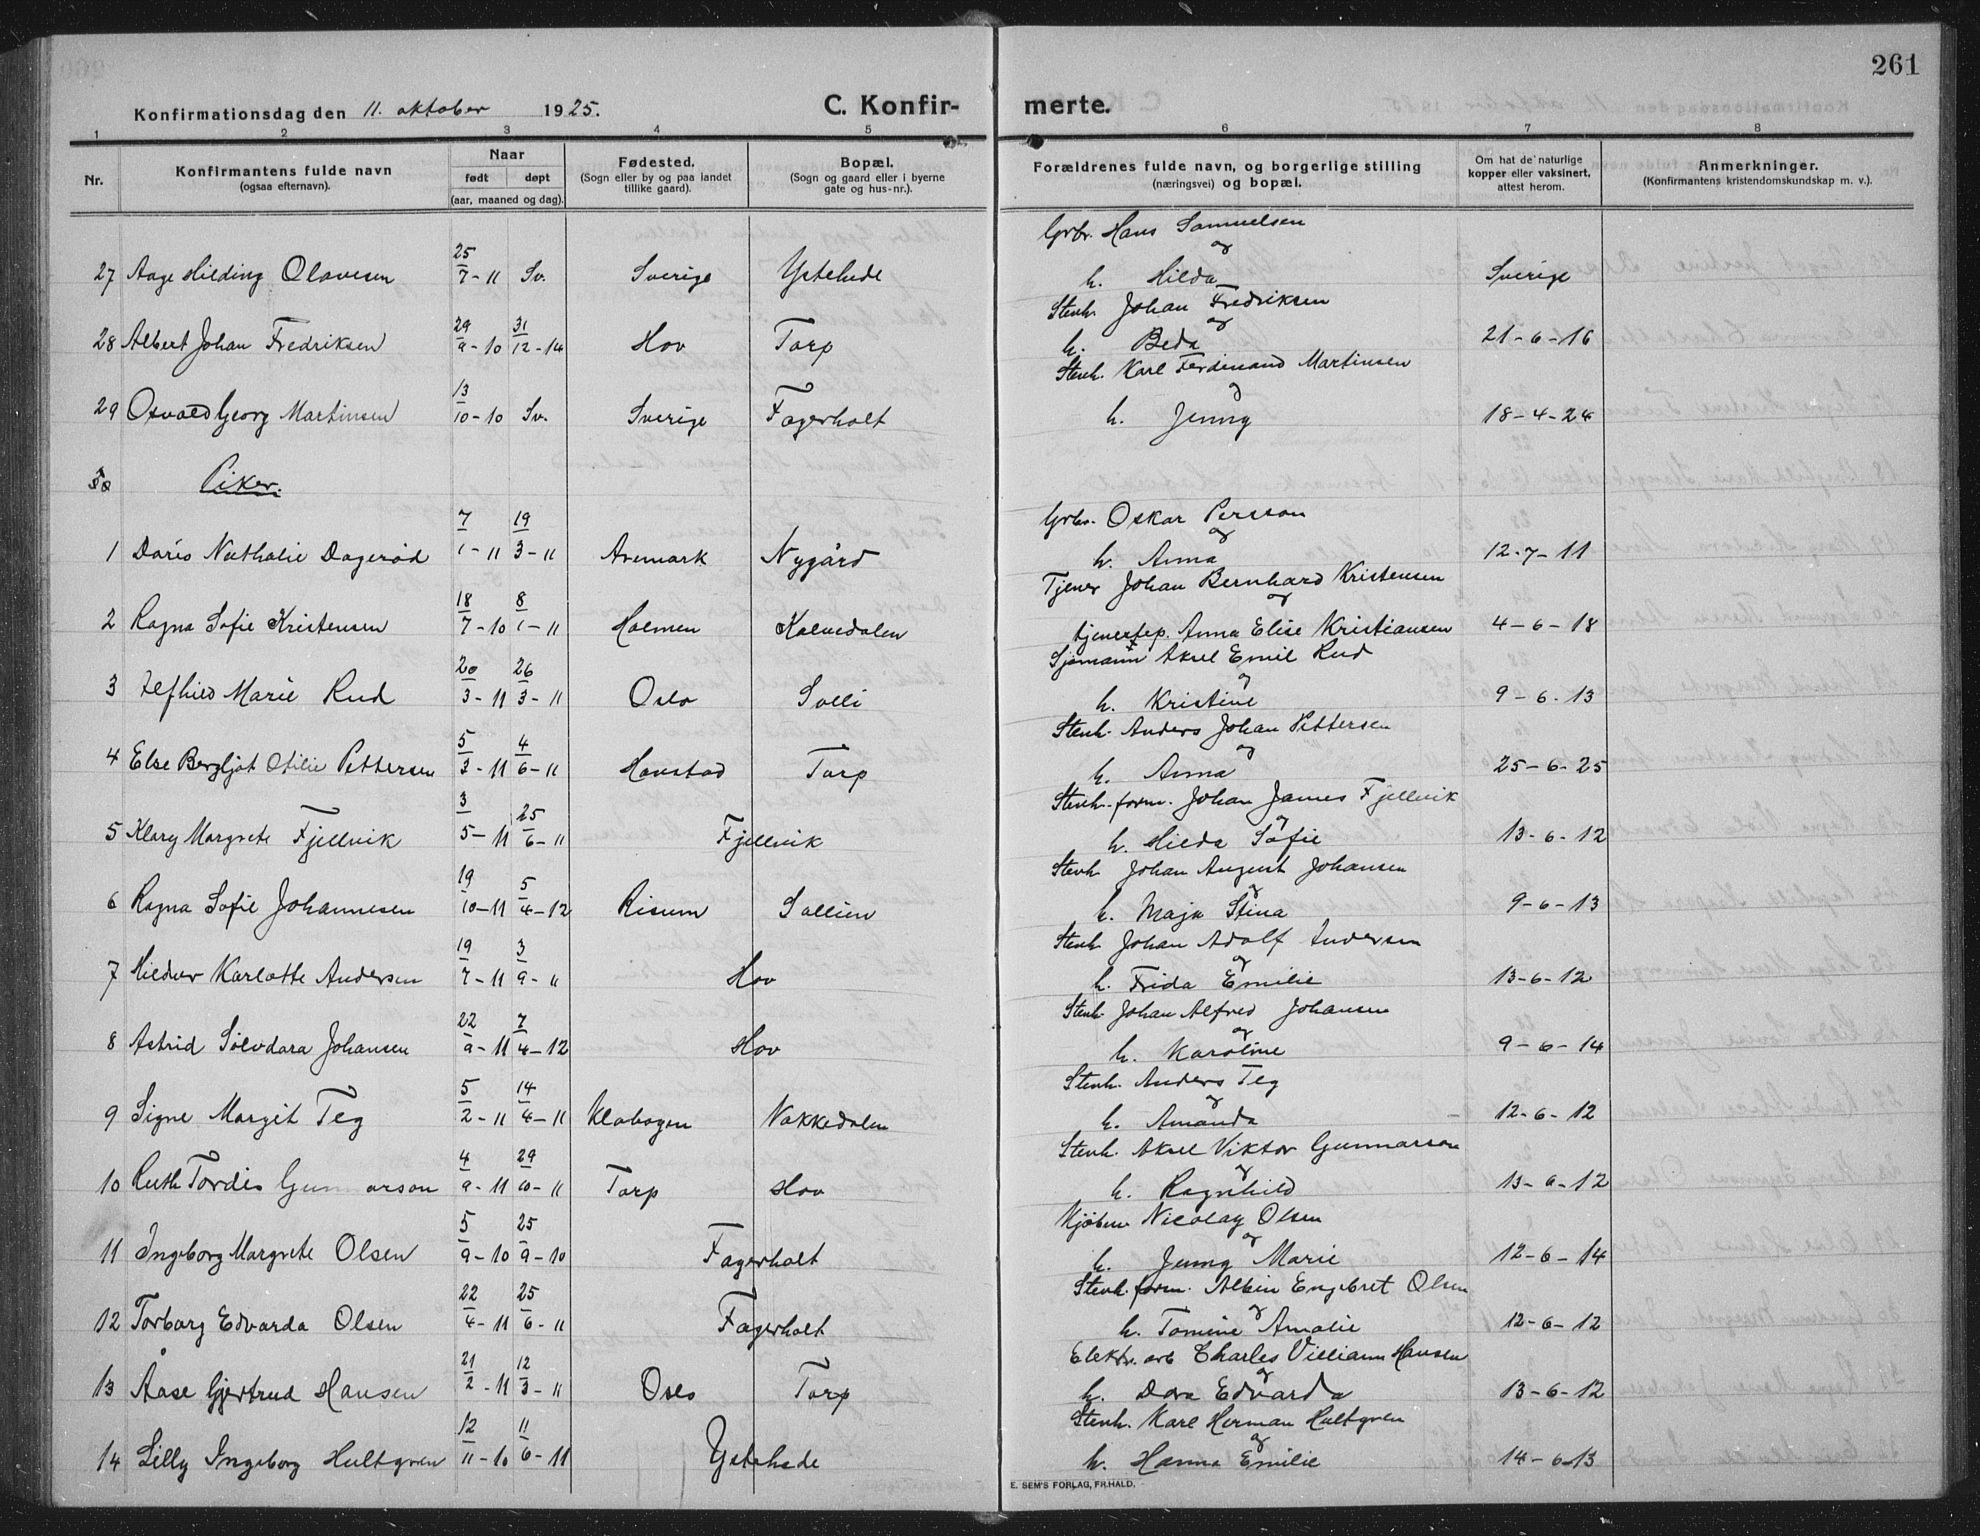 261
Konfirmationsdag den 11. oktober 1925. C. Konfir- merte.
1 2 3 4 5 6 7 8
Nr. Konfirmantens fulde navn (ogsaa efternavn). Naar født døpt (aar, maaned og dag). Fødested. (Sogn eller by og paa landet tillike gaard). Bopæl. (Sogn og gaard eller i byerne gate og hus-nr.). Forældrenes fulde navn, og borgerlige stilling (næringsvei) og bopæl. Om hat de naturlige kopper eller vaksinert, attest herom. Anmerkninger. (Konfirmantens kristendomskundskap m. v.).
Grbr. Hans Samuelsen
og
27 Aage Hilding Olavesen 25/7-11 Sv. Sverige Ystehede h. Hilda Sverige
Stenh. Johan Fredriksen
og
28 Albert Johan Fredriksen 29/9-10 31/12-14 Hov Torp h. Beda 21-6-16
Stenh. Karl Ferdinand Martinsen
og
29 Osvald Georg Martinsen 13/10-10 Sv. Sverige Fagerholt h. Jenny 18-4-24
Piker.
Grbr. Oskar Persson
og
1 Doris Nathalie Dagerød 7/1-11 19/3-11 Aremark Nygård h. Anna 12-7-11
Tjener Johan Bernhard Kristensen
og
2 Ragna Sofie Kristensen 18/7-10 8/1-11 Holmen Kalvedalen tjenertep. Anna Elise Kristiansen 4-6-18
Sjømann Aksel Emil Rud
og
3 Marie Rud 20/3-11 26/3-11 Oslo Solli h. Kristine 9-6-13
Stenh. Anders Johan Pettersen
og
4 Else Bergljot Otilie Pettersen 5/3-11 4/6-11 Havstad Torp h. Anna 25-6-25
Stenh. form. Johan James Fjellvik
og
5 Klary Margrete Fjellvik 3/5-11 25/6-11 Fjellvik h. Hilda Sofie 13-6-12
Stenh. Johan August Johansen
og
6 Ragna Sofie Johannesen 19/10-11 5/4-12 Risum Sollien h. Maja Stina 9-6-13
Stenh. Johan Adolf Andersen
og
7 Hildur Karlotte Andersen 19/7-11 3/9-11 Hov h. Frida Emilie 13-6-12
Stenh. Johan Alfred Johansen
og
8 Astrid Solvdara Johansen 22/9-11 7/4-12 Hov h. Karoline 9-6-14
Stenh. Anders Teg
og
9 Signe Margit Teg 5/2-11 14/4-11 Klabogen Nakkedalen h. Amanda 12-6-12
Stenh. Aksel Viktor Gunnarson
og
10 Ruth Tordis Gunnarson 4/9-11 29/10-11 Torp Hov h. Ragnhild 13-6-12
Kjøbm. Nicolay Olsen
og
11 Ingeborg Margrete Olsen 5/9-10 25/9-10 Fagerholt h. Jenny Marie 12-6-14
Stenh. form. Albin Engebret Olsen
og
12 Torborg Edvarda Olsen 22/4-11 25/6-11 Fagerholt h. Tomine Amalie 12-6-12
Elektr. arb Charles Villiam Hansen
og
13 Åase Gjertrud Hansen 21/2-11 12/3-11 Oslo Torp h. Dora Edvarda 13-6-12
Stenh. Karl Herman Hultgren
og
14 Lilly Ingeborg Hultgren 12/11-10 11/6-11 Ystehede h. Hanna Emilie 14-6-13
E. SEM'S FORLAG, FR.HALD.